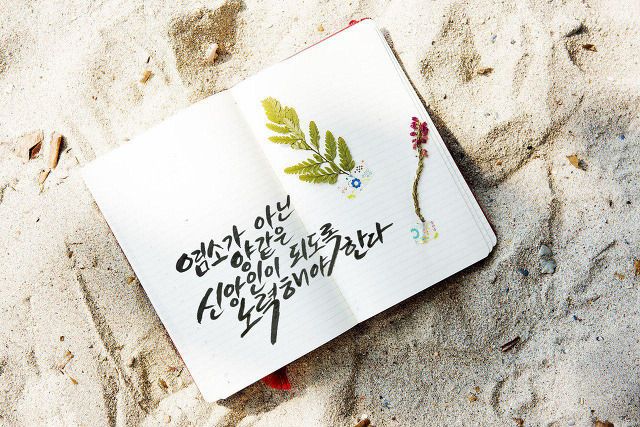 염소가 아닌
양같은
신앙인이 되도록
노력해야한다